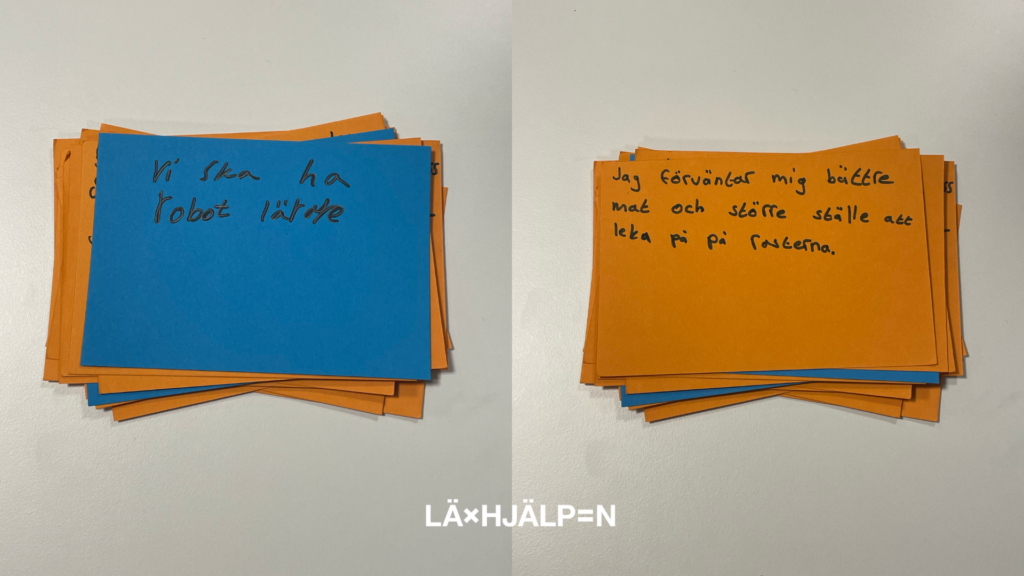 Vi ska ha
robot lärare
Jag förväntar mig bättre
mat och större ställe att
leka på på rasterna.
LÄ×HJÄLP=N